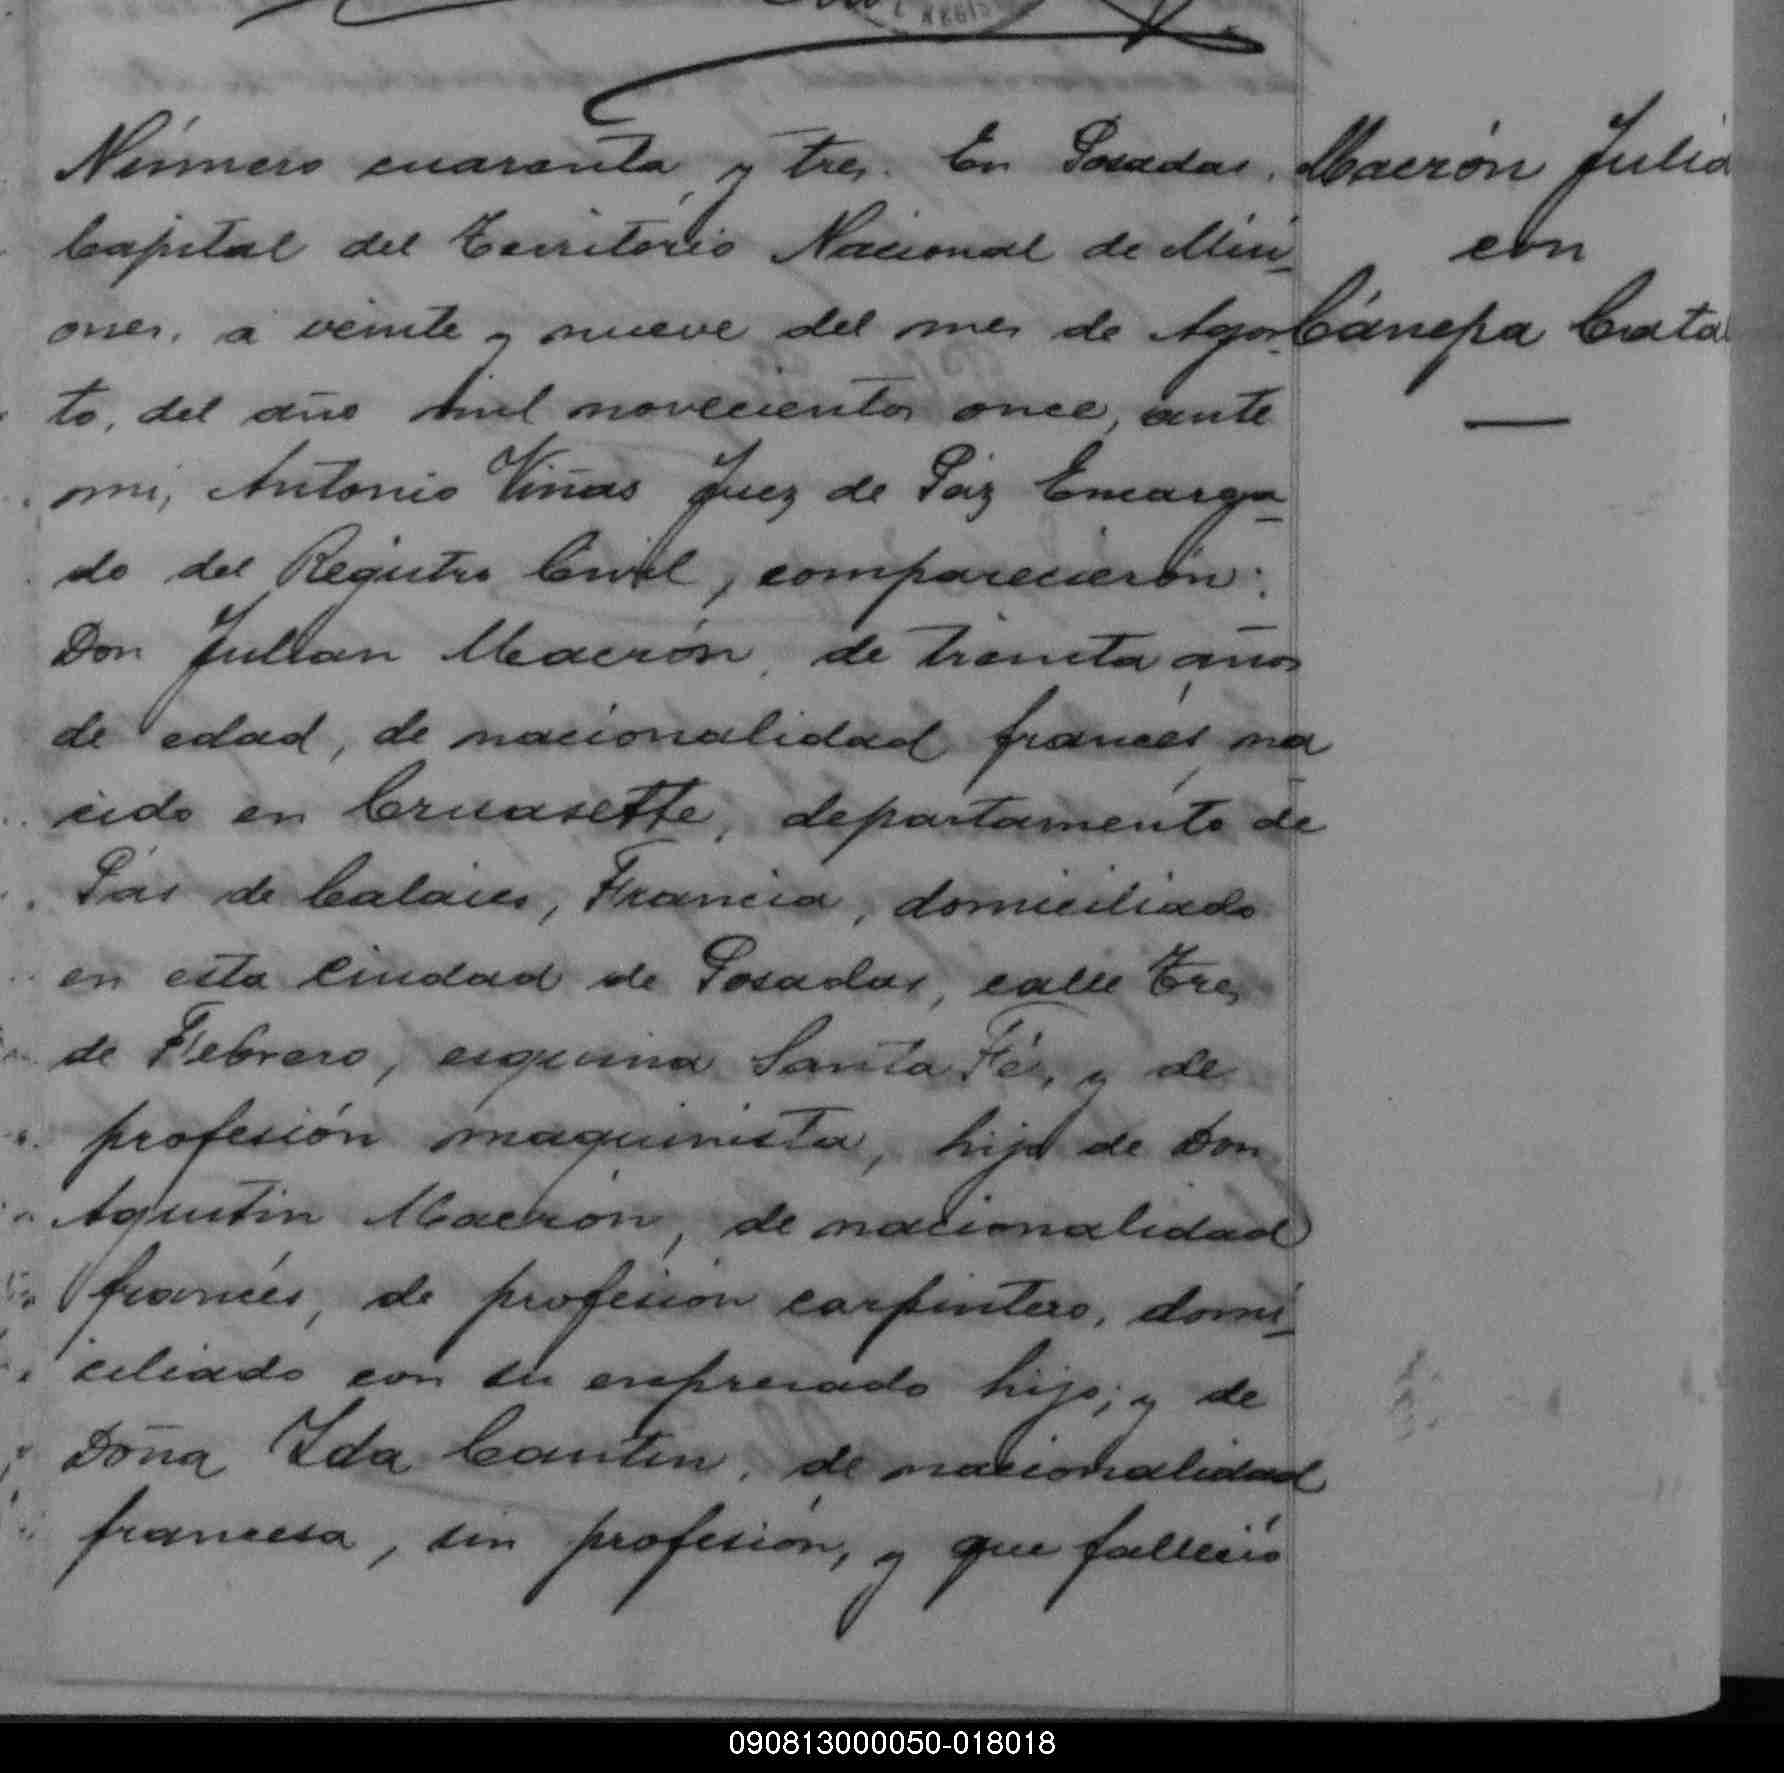 Número cuarenta y tres. En Posadas,
Capital del Territorio Nacional de Misi-
ones, a veinte y nueve del mes de Agos-
to, del año mil novecientos once, ante
mi, Antonio Viñas Juez de Páz Encarga-
do del Registro Civil, comparecieron:
Don Julian Macrón, de treinta años
de edad, de nacionalidad francés, na-
cido en Cruasette, departamento de
Pas de Calaies, Francia, domiciliado
en esta ciudad de Posadas, calle Tres
de Febrero, esquina Santa Fé, y de
profesión maquinista, hijo de Don
Agustin Macrón, de nacionalidad
francés, de profesión carpintero, domi-
ciliado con su expresado hijo; y de
Doña Ida Cantin, de nacionalidad
francesa, sin profesión, y que falleció
Macrón Julia
con
Cánepa Cata
090813000050-018018